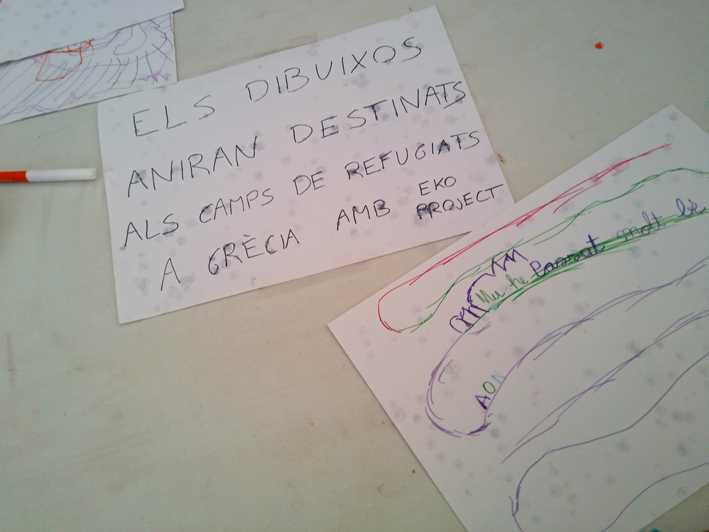 ELS DIBUIXOS
ANIRAN DESTINATS
ALS CAMPS DE REFUGIATS
A GRÈCIA AMB EKO
PROJECT
molt bé
AON